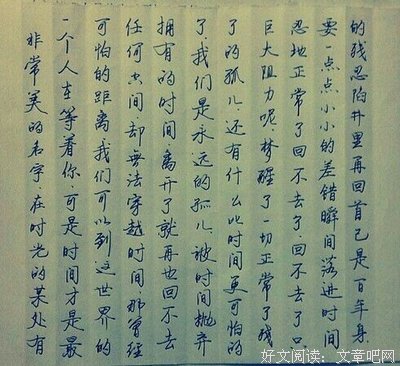 非常美的名字.在时光的某处有
一个人在等着你.可是时间才是最
可怕的距离我们可以到这世界的
任何空间却无法穿越时间那曾经
拥有的时间离开了就再也回不去
了.我们是永远的孤儿.被时间抛弃
了的孤儿.还有什么比时间更可怕的
巨大阻力呢.梦醒了一切正常了残
忍地正常了回不去了回不去了只
要一点点小小的差错瞬间落进时间
的残忍陷井里再回首已是百年身
好文阅读：文章吧网